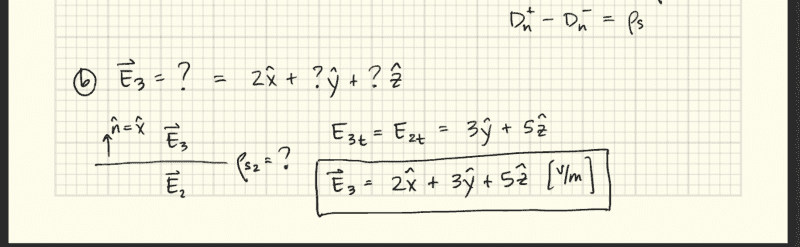 Dn⁺ - Dn⁻ = ρs
ⓑ E⃗₃ = ? = 2x̂ + ?ŷ + ?ẑ
n̂ = x̂ E⃗₃
E⃗₂
ρs₂ = ?
E₃t = E₂t = 3ŷ + 5ẑ
E⃗₃ = 2x̂ + 3ŷ + 5ẑ [V/m]